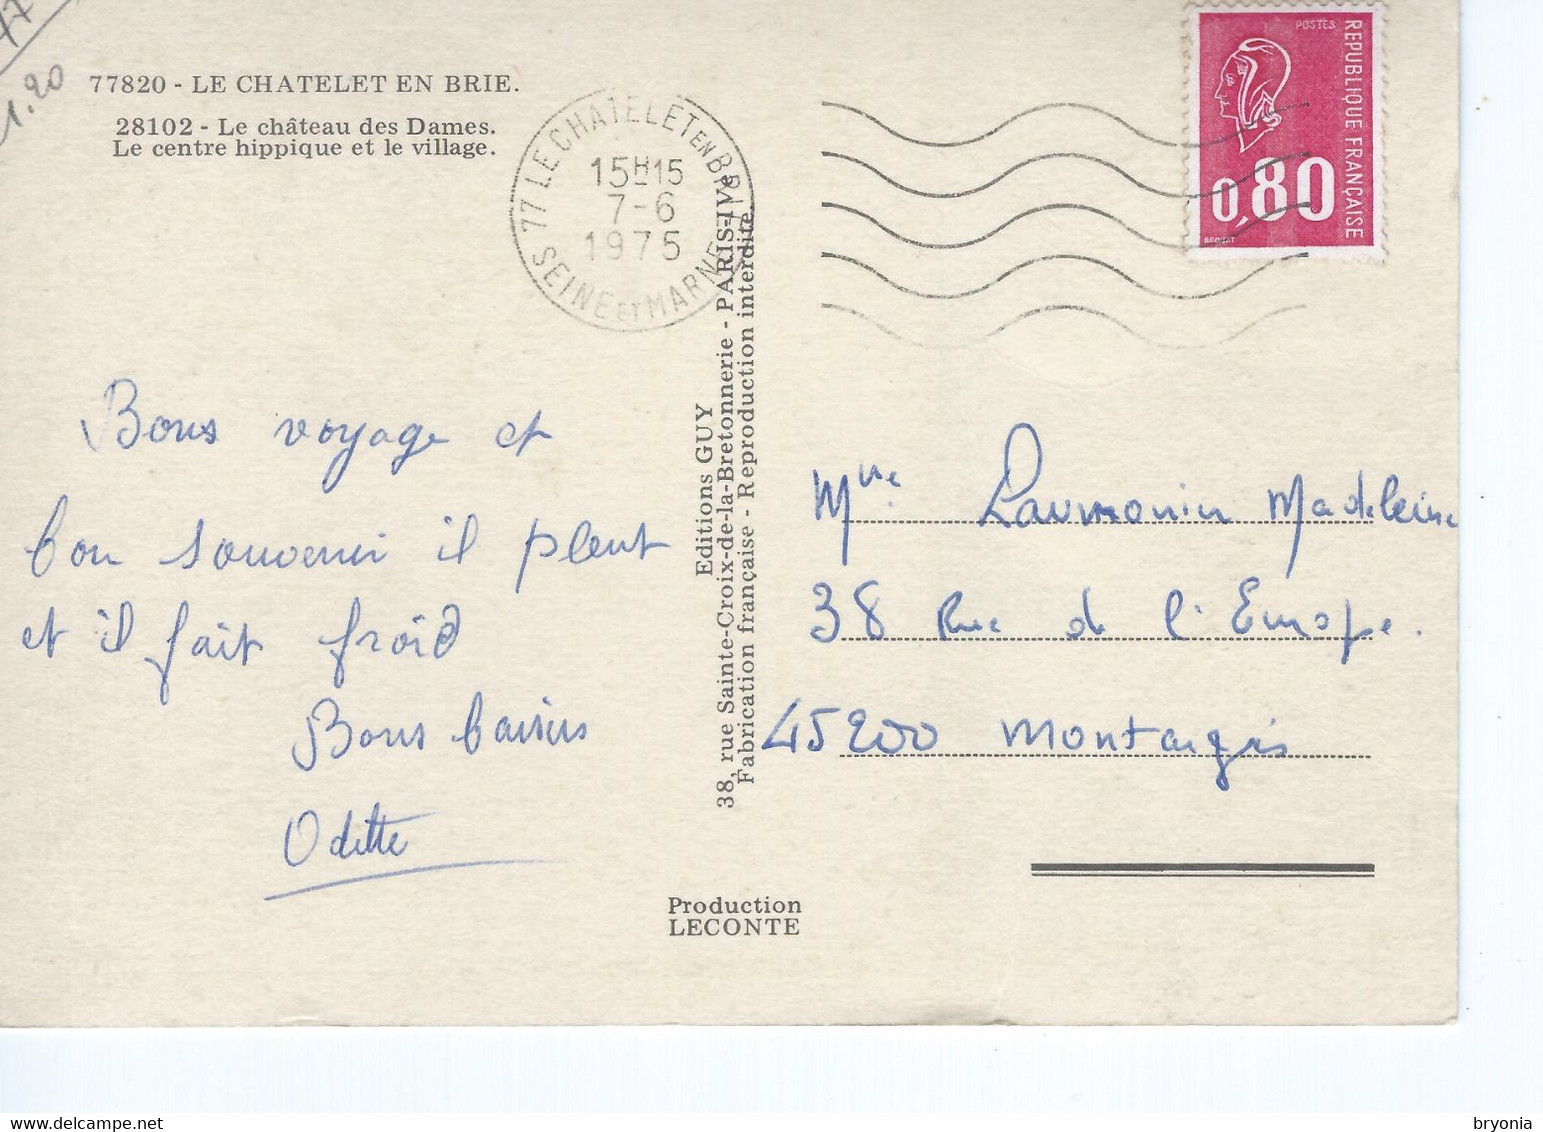 77
1.20
77820 - LE CHATELET EN BRIE.
28102 - Le château des Dames.
Le centre hippique et le village.
77 LE CHATELET EN BRIE
15H15
7-6
1975
SEINE ET MARNE
POSTES
REPUBLIQUE FRANÇAISE
0,80
BEQUET
Bons voyage et
bon souvenir il pleut
et il fait froid
Bons baisers
Odette
Editions GUY
38, rue Sainte-Croix-de-la-Bretonnerie - PARIS-IVe
Fabrication française - Reproduction interdite.
Mme Laumonier Madeleine
38 Rue de l'Europe.
45200 Montargis
Production
LECONTE
bryonia